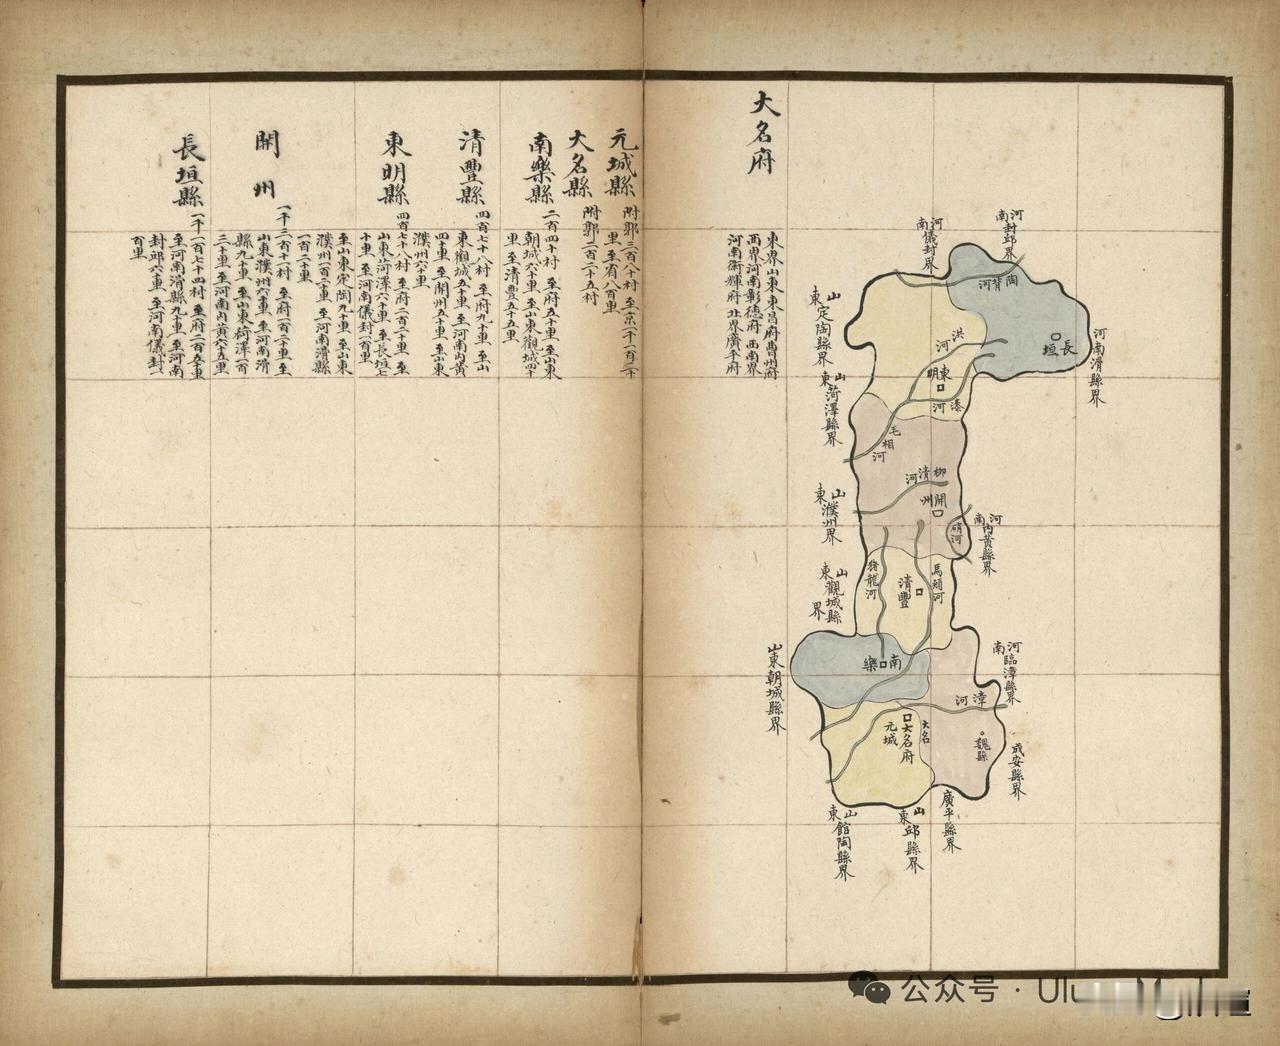 大名府
東界山東東昌府曹州府
西界河南彰德府西南界
河南衛輝府北界廣平府
元城縣
附郭三百八十村 至京一千一百二十
里 至省八百里
大名縣
附郭二百二十五村
南樂縣
二百四十村 至府五十里 至山東
朝城六十里 至山東觀城四十
里 至清豐五十五里
清豐縣
四百七十八村 至府九十里 至山
東觀城五十里 至河南內黃
四十里 至開州五十里 至山東
濮州六十里
東明縣
四百七十八村 至府二百二十里 至
山東菏澤六十里 至長垣七
十里 至河南儀封一百里
至山東定陶九十里 至山東
濮州一百二十里 至河南滑縣
一百二十里
開州
一千三百十一村 至府一百二十里 至
山東濮州六十里 至河南滑
縣九十里 至山東菏澤一百
三十里 至河南內黃六十五里
長垣縣
一千一百七十四村 至府二百五十里
至河南滑縣九十里 至河南
封邱六十里 至河南儀封一
百里
河南封邱界
河南儀封界
陶背河
長垣
河南滑縣界
山東定陶縣界
洪河
東明
漆河
山東菏澤縣界
毛相河
柳清河
開州
山東濮州界
硝河
河南內黃縣界
豬龍河
清豐
馬頰河
山東觀城縣界
南樂
山東朝城縣界
河南臨漳縣界
漳河
大名
大名府
元城
魏縣
成安縣界
廣平縣界
山東邱縣界
山東館陶縣界
公众号 · Ulu